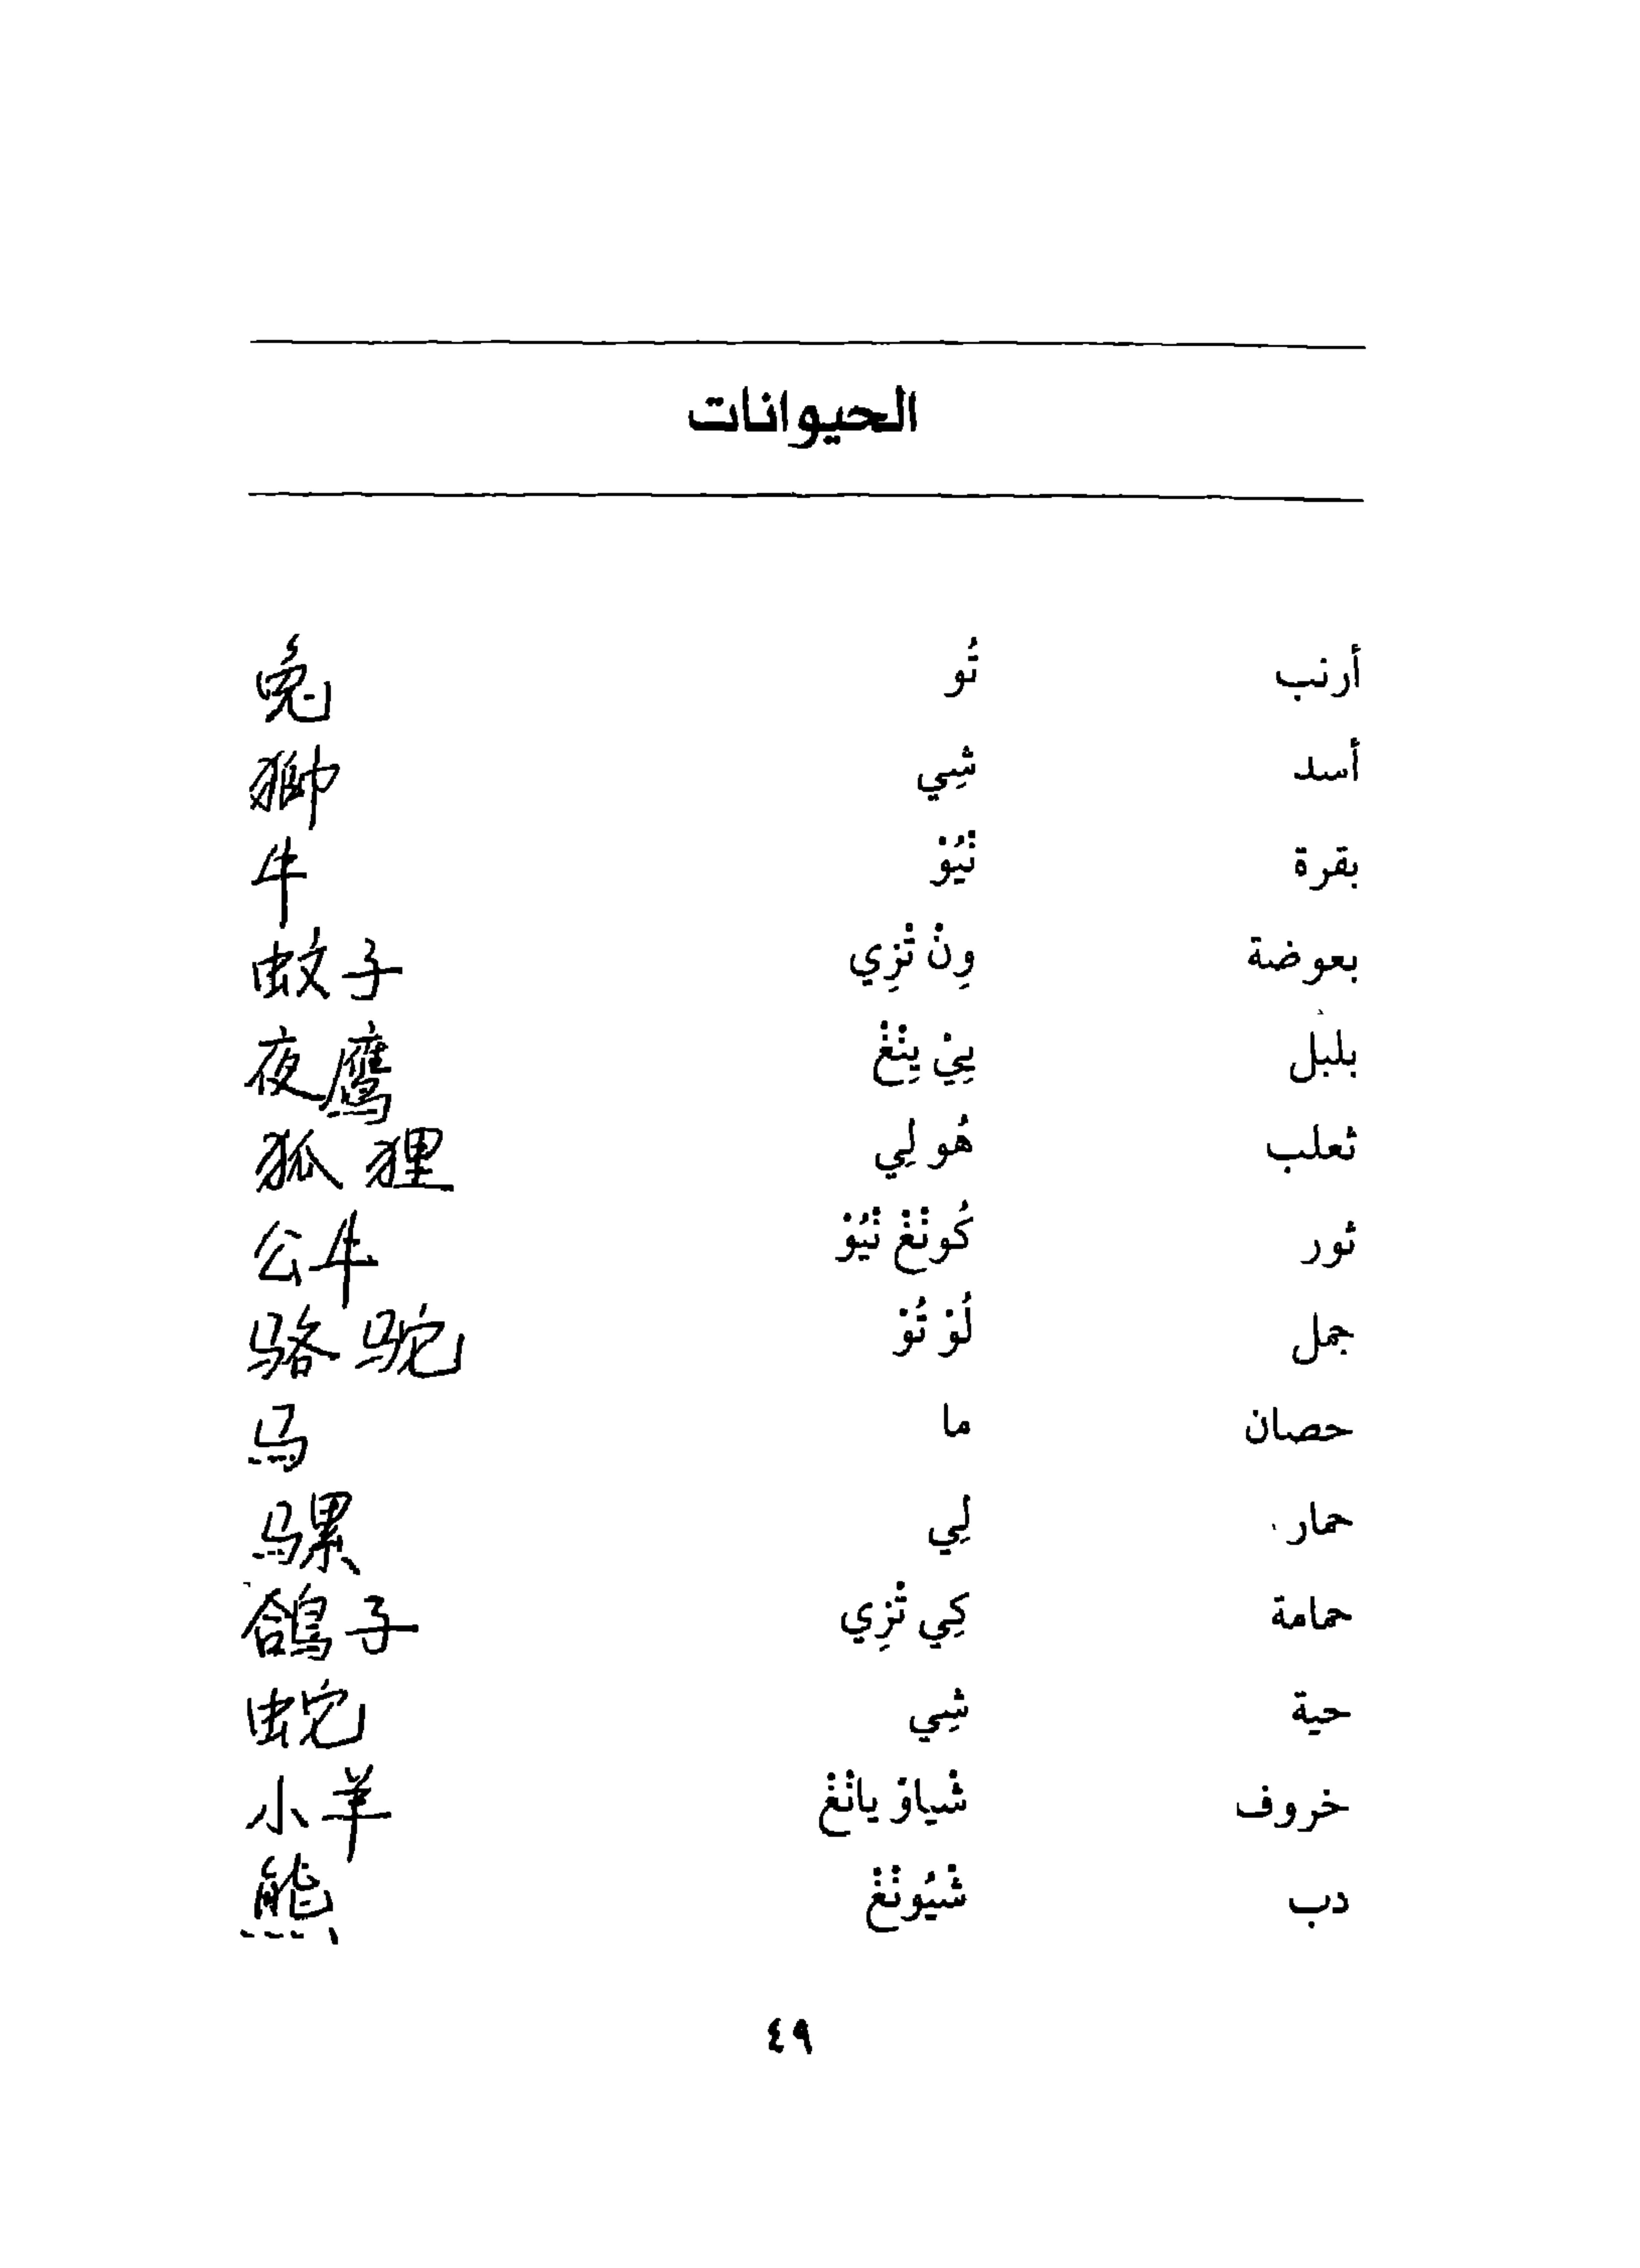 الحيوانات
أرنب تُو 兔
أسد شِي 獅
بقرة نْيُوْ 牛
بعوضة وِنْ تْزِي 蚊子
بلبل يِيْ يِنْغْ 夜鹰
ثعلب هُو لِي 狐狸
ثور كُونْغْ نْيُوْ 公牛
جمل لُوْ تُوْ 骆驼
حصان ما 马
حمار لِي 骡
حمامة كِي تْزِي 鸽子
حية شِي 蛇
خروف شْياوْ يانْغْ 小羊
دب شْيُونْغْ 熊
٤٩